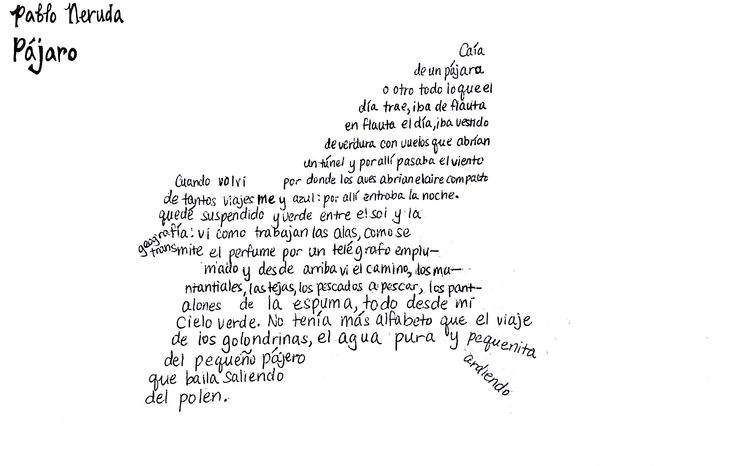 Pablo Neruda
Pájaro
Caía
de un pájara
o otro todo lo que el
día trae, iba de flauta
en flauta el día, iba vestido
de verdura con vuelos que abrían
un túnel y por allí pasaba el viento
Cuando volví por donde las aves abrian el aire compacto
de tantos viajes me y azul: por allí entraba la noche.
quedé suspendido y verde entre el sol y la
geografía: vi como trabajan las alas, como se
transmite el perfume por un telégrafo emplu-
mado y desde arriba vi el camino, los ma-
nantiales, las tejas, los pescados a pescar, los pant-
alones de la espuma, todo desde mi
Cielo verde. No tenía más alfabeto que el viaje
de los golondrinas, el agua pura y pequenita
del pequeño pájero ardiendo
que baila saliendo
del polen.